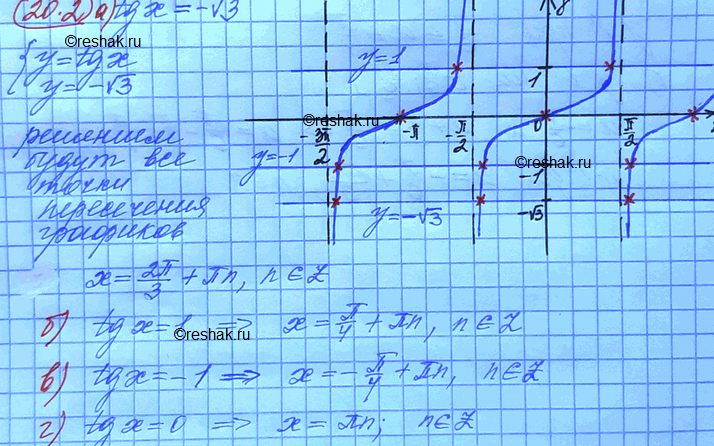 (20.2) а) tg x = -√3
©reshak.ru
{ y = tg x
y = -√3
решением
будут все
точки
пересечения
графиков
y
y = 1
1
©reshak.ru
-3π/2
-π
-π/2
0
π/2
y = -1
-1
©reshak.ru
y = -√3
-√3
x = 2π/3 + πn, n ∈ Z
б) tg x = 1 => x = π/4 + πn, n ∈ Z
©reshak.ru
в) tg x = -1 => x = -π/4 + πn, n ∈ Z
г) tg x = 0 => x = πn; n ∈ Z